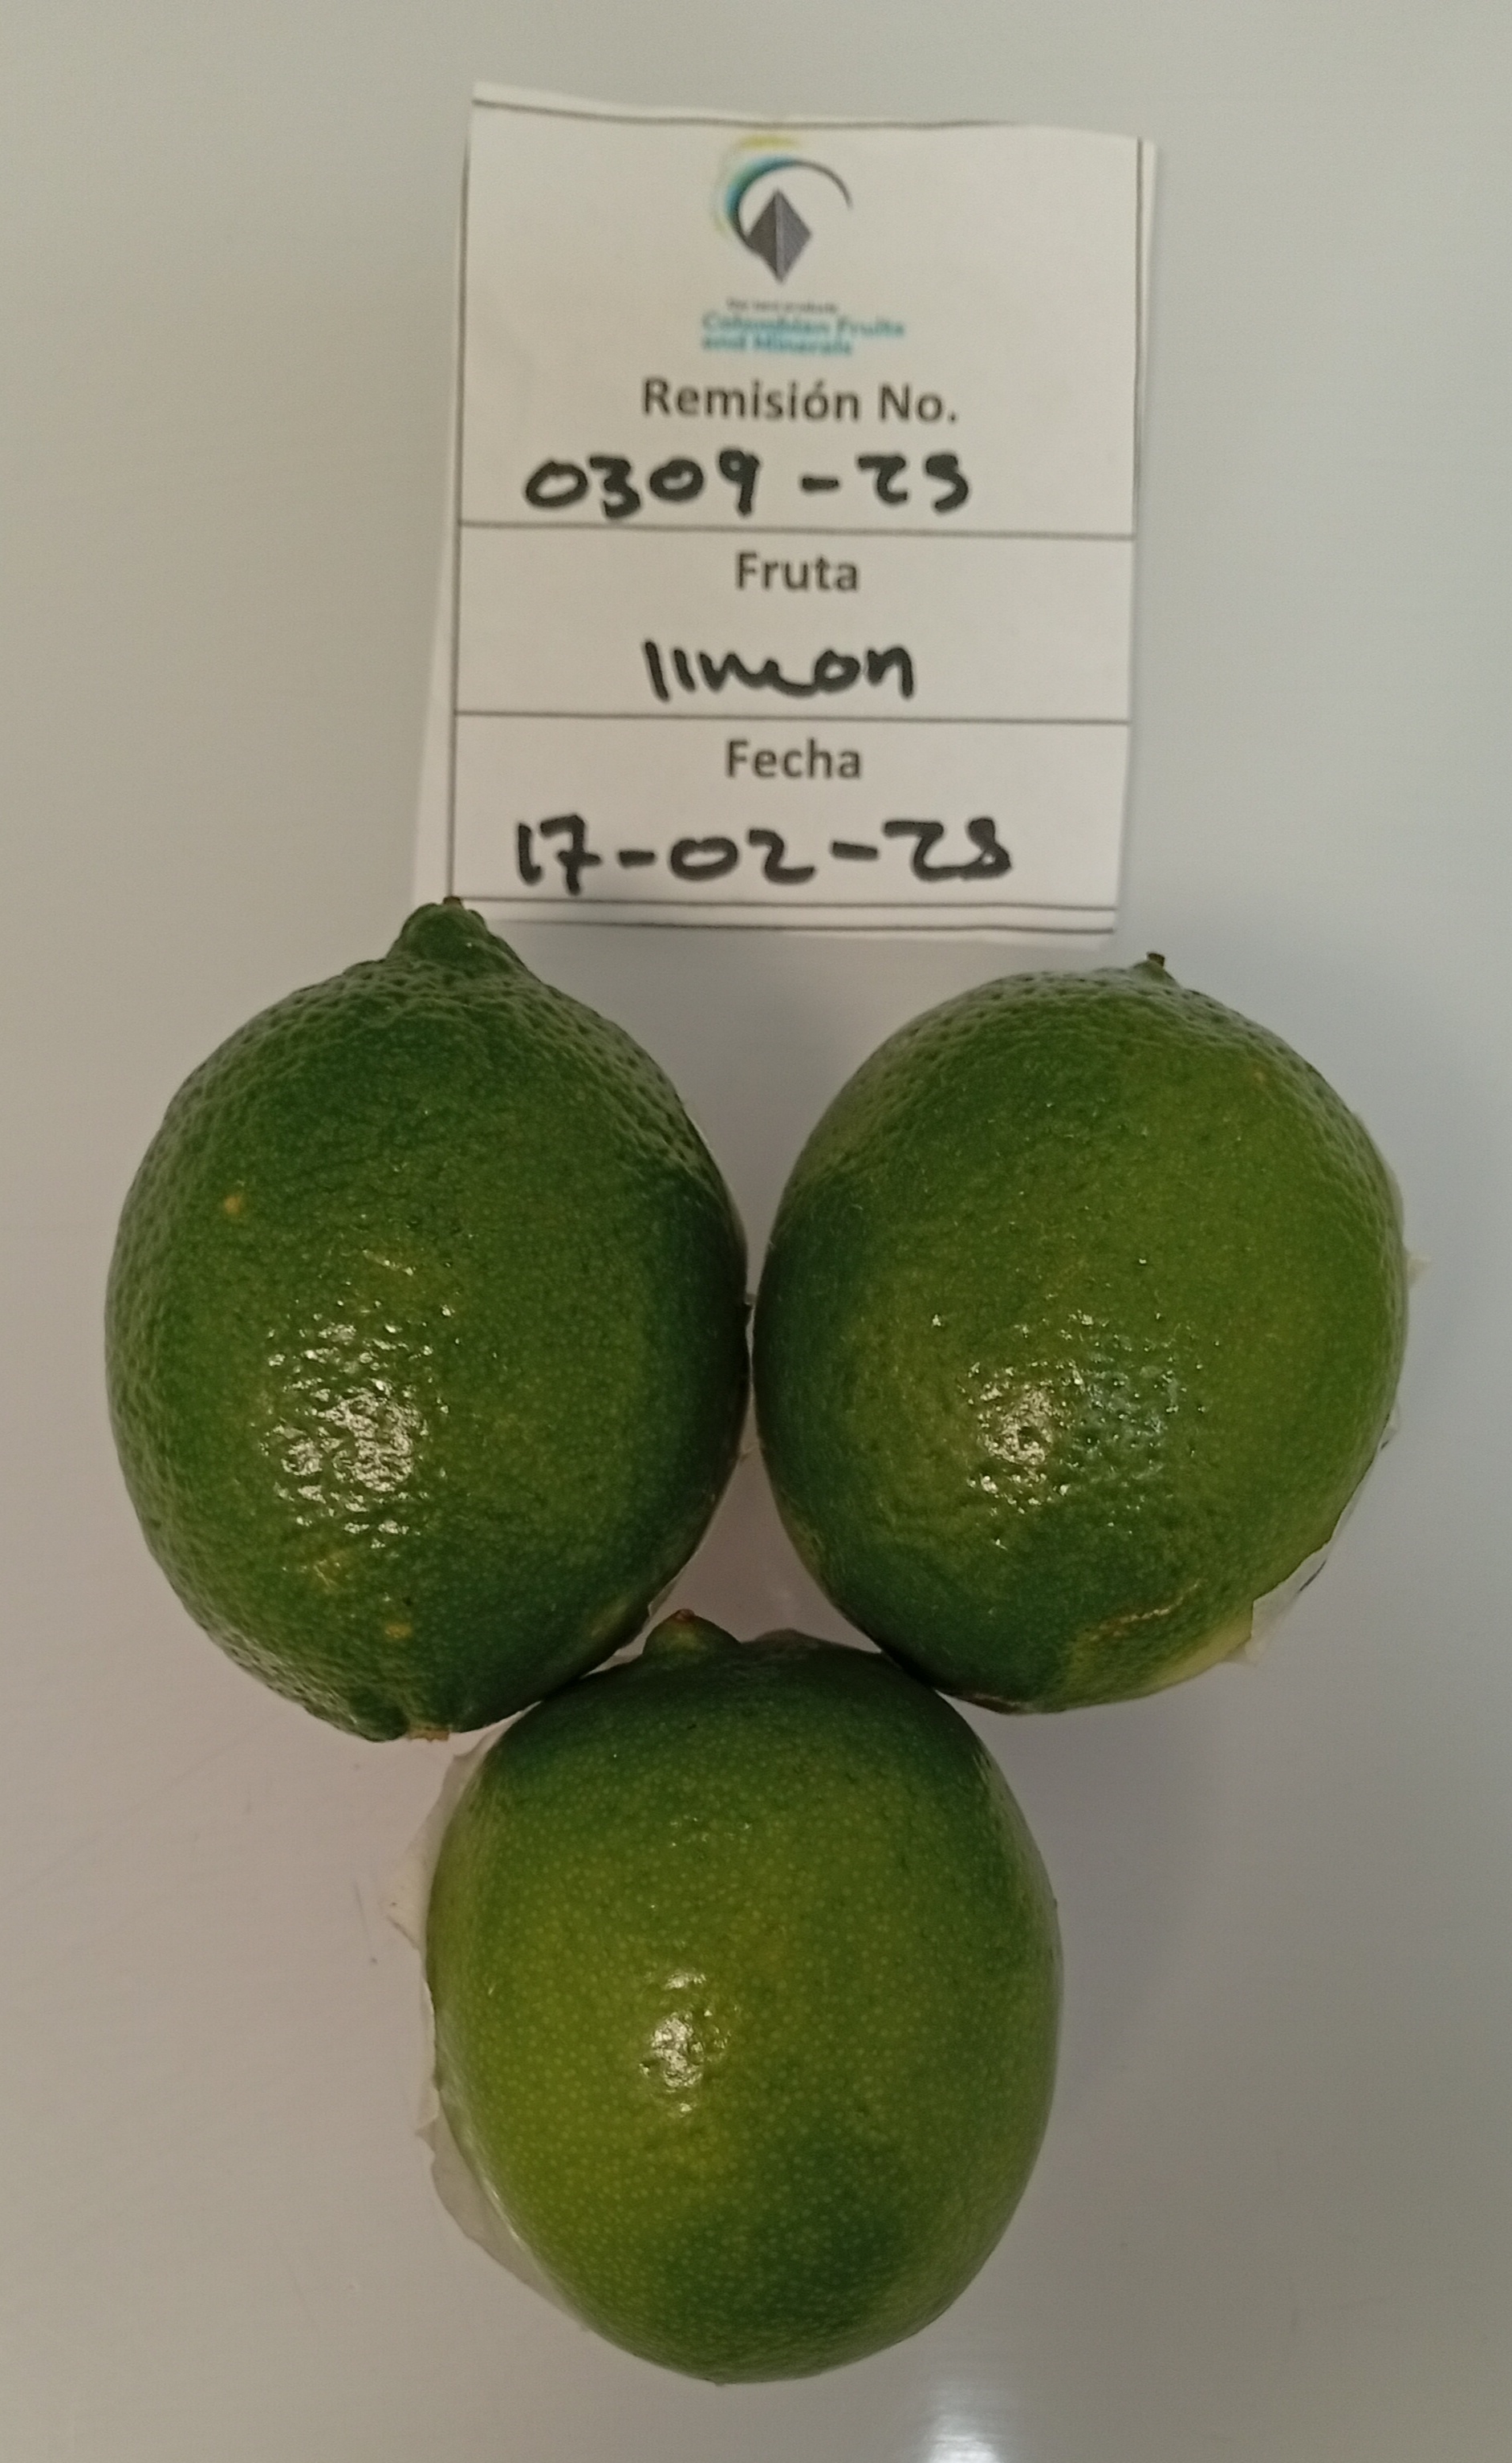 Colombian Fruits
and Minerals
Remisión No.
0309-25
Fruta
limon
Fecha
17-02-25